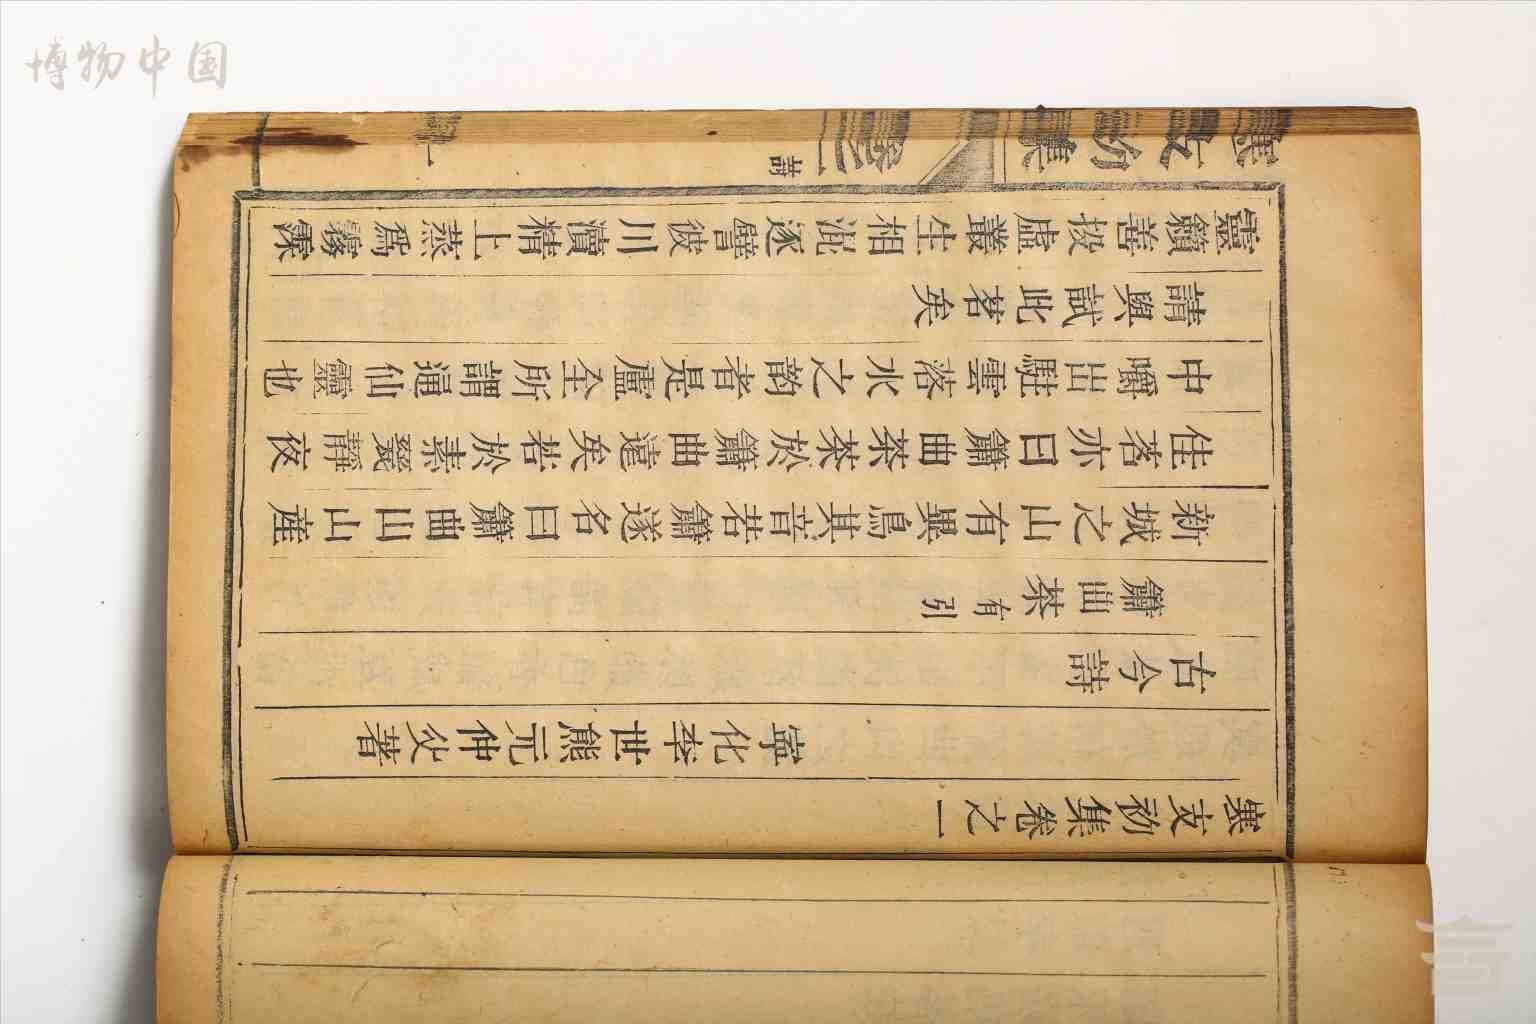 博物中国
寒支初集卷之一
寧化李世熊元仲父著
古今詩
簫曲茶有引
新城之山有異鳥其音若簫遂名曰簫曲山山產
佳茗亦曰簫曲茶茶於簫曲遠矣若於素甖靜夜
中嚼出駐雲落水之韵者是盧仝所謂通仙靈也
請與試此茗矣
靈籟善投虛叢生相混逐譬彼川瀆精上蒸爲霧霂
寒支初集 卷一 詩 一